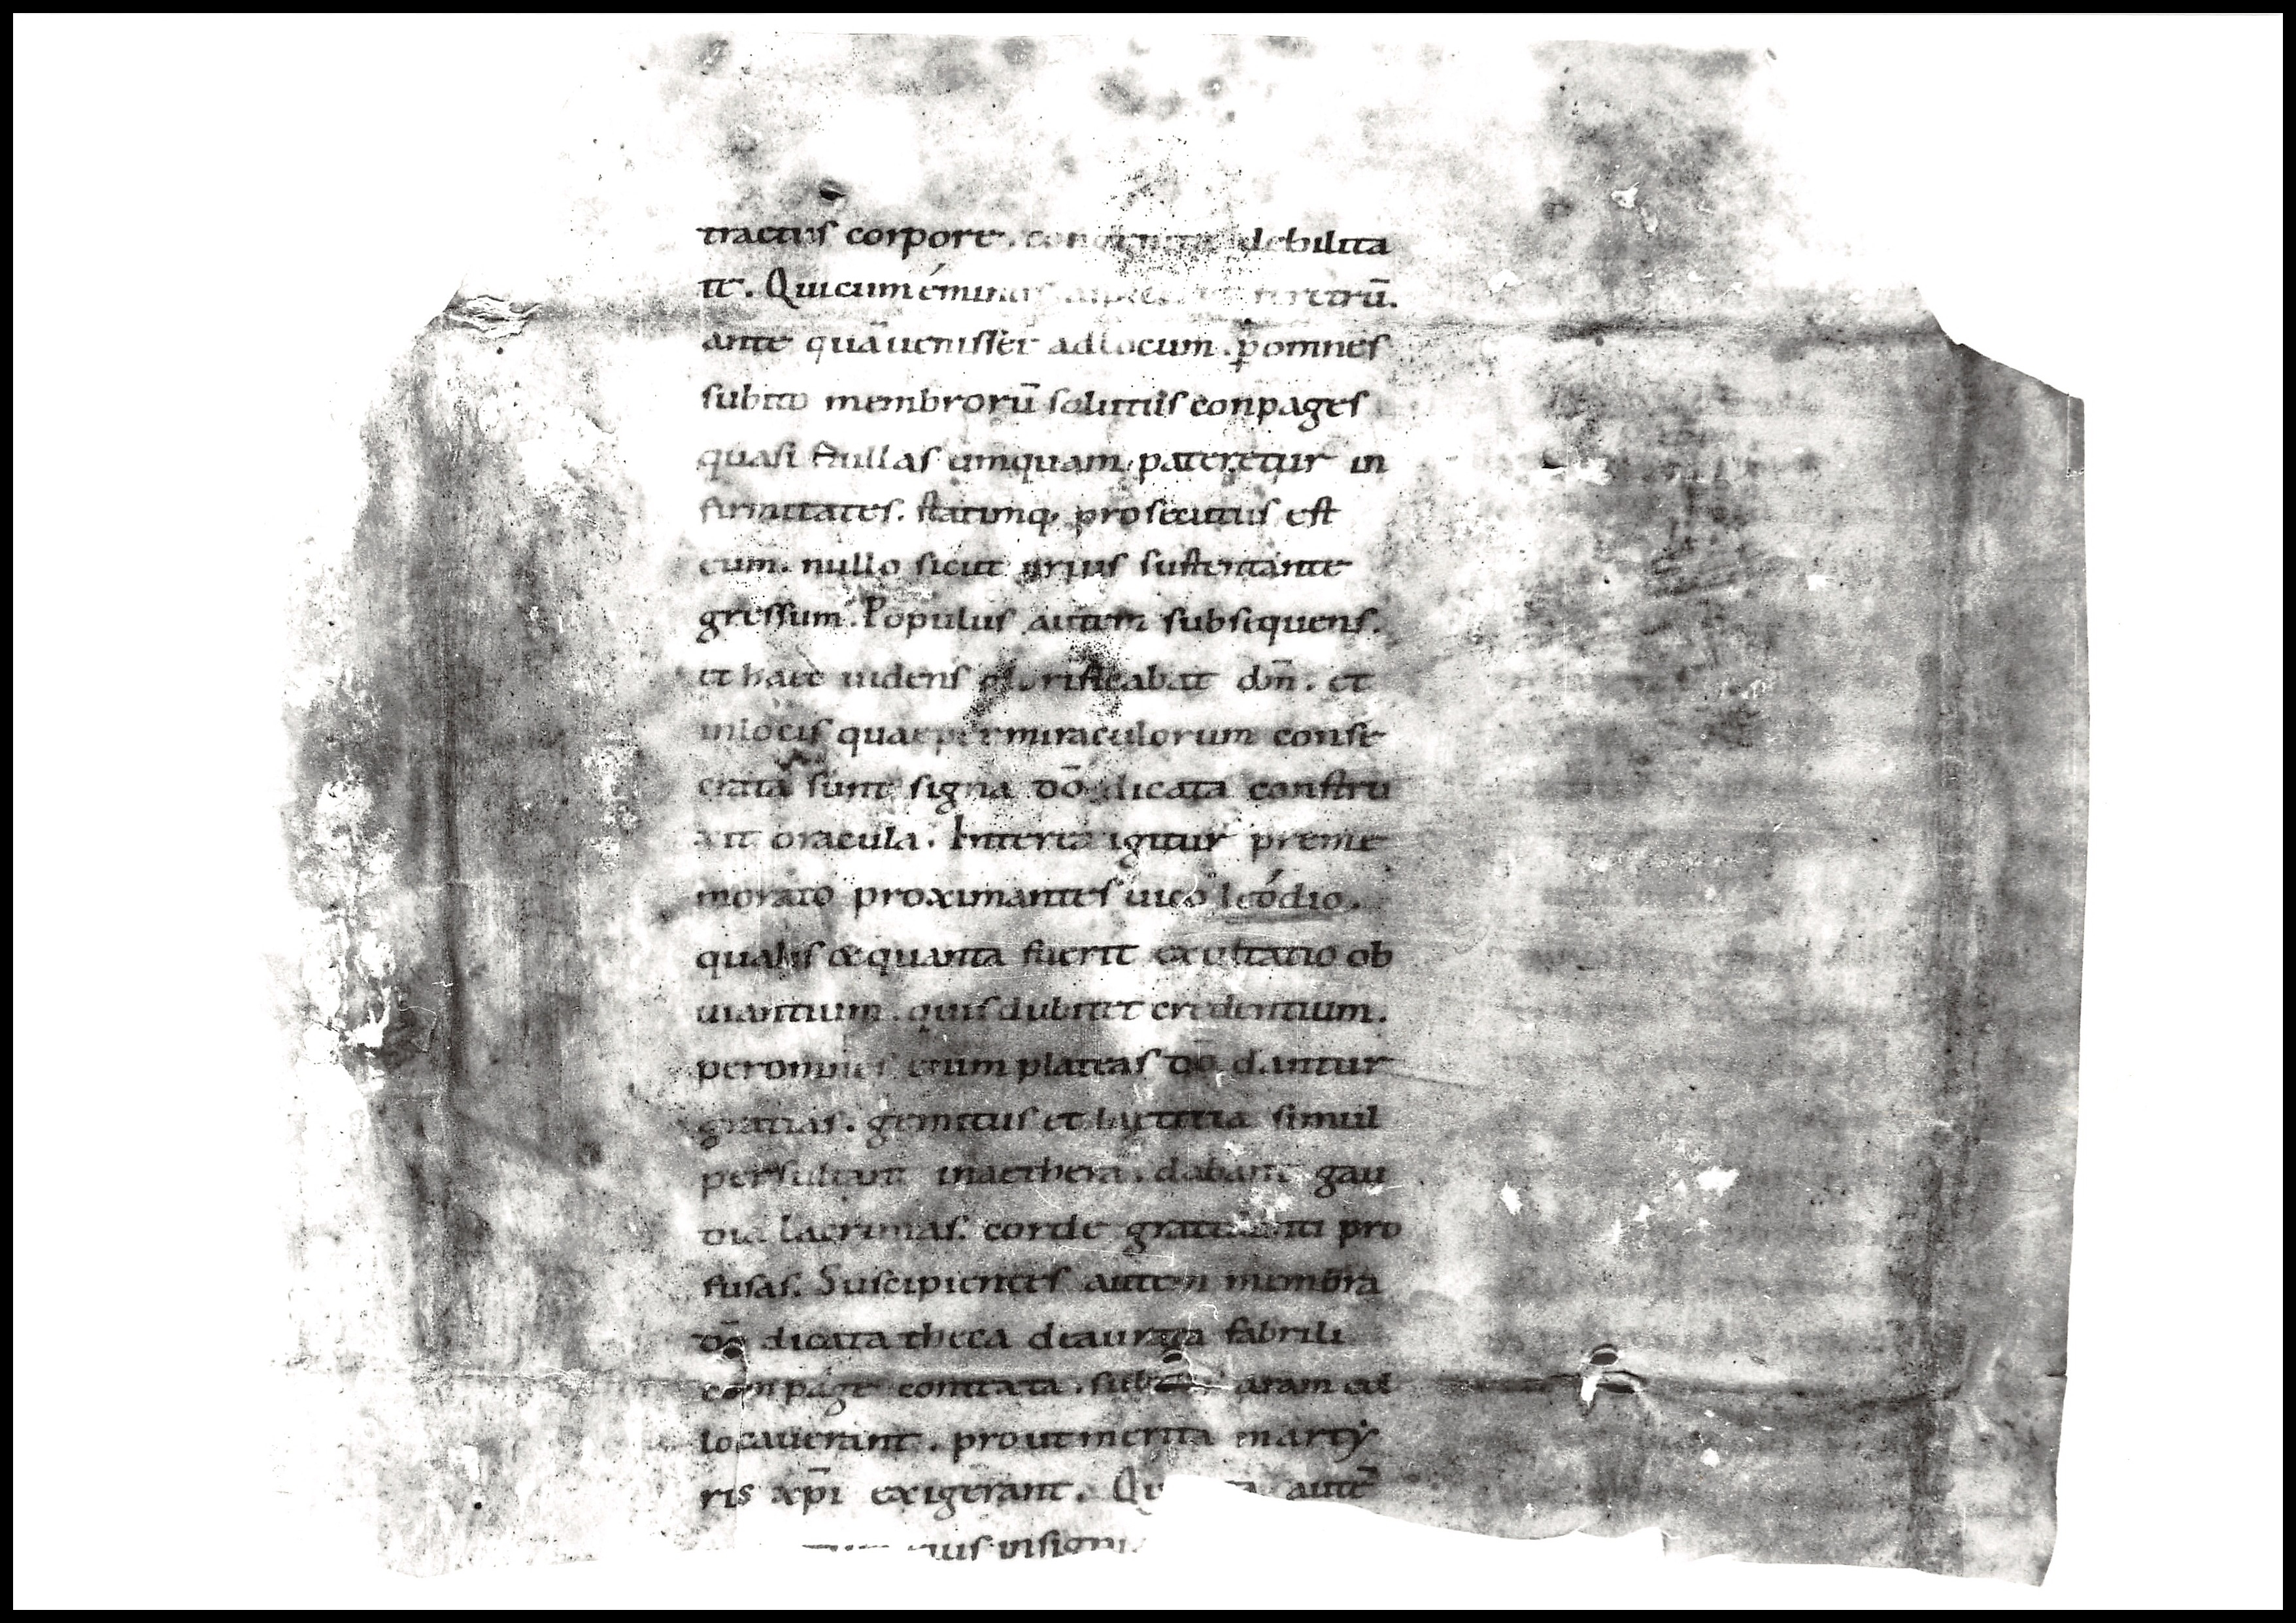 tractus corpore. debilita
te. Qui cum éminus feretrū.
ante quā uenisset ad locum. p̄ omnes
subito membrorū solutus conpages
quasi nullas umquam pateretur in
firmitates. statimq; prosecutus est
eum. nullo sicut prius sustentante
gressum. Populus autem subsequens.
et haec uidens glorificabat dm̄. et
in locis quae per miraculorum conse
crata sunt signa dō dicata constru
xit oracula. Interea igitur preme
morato proximantes uico leódio.
qualis & quanta fuerit exultatio ob
uiantium. quis dubitet credentium.
per omnes enim plateas dō dantur
gratias. gemitus et laetitia simul
persultant in aethera. dabant gau
dia lacrimas. corde gratulanti pro
fusas. Suscipientes autem membra
dō dicata theca deaurata fabrili
conpage contexta. sub aram col
locauerunt. prout merita marty
ris xp̄i exigerant. autē
insigni